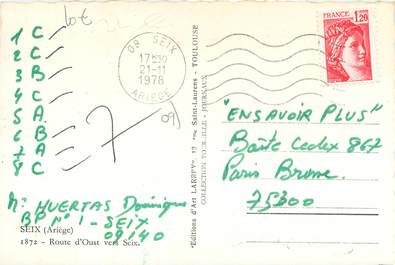 lot
1 C
2 C
3 B
4 C
5 A.
6 B
7 A
8 C
7
09)
09 SEIX
17H30
21-11
1978
ARIEGE
FRANCE
1,20
"EN SAVOIR PLUS"
Boîte Cedex 867
Paris Brune.
75300
Mr HUERTAS Dominique
BP n° 1 - SEIX
09140
SEIX (Ariège)
1872 - Route d'Oust vers Seix.
"Editions d'Art LARREY" 12 Saint-Laurens - TOULOUSE
COLLECTION - JOURNAUX